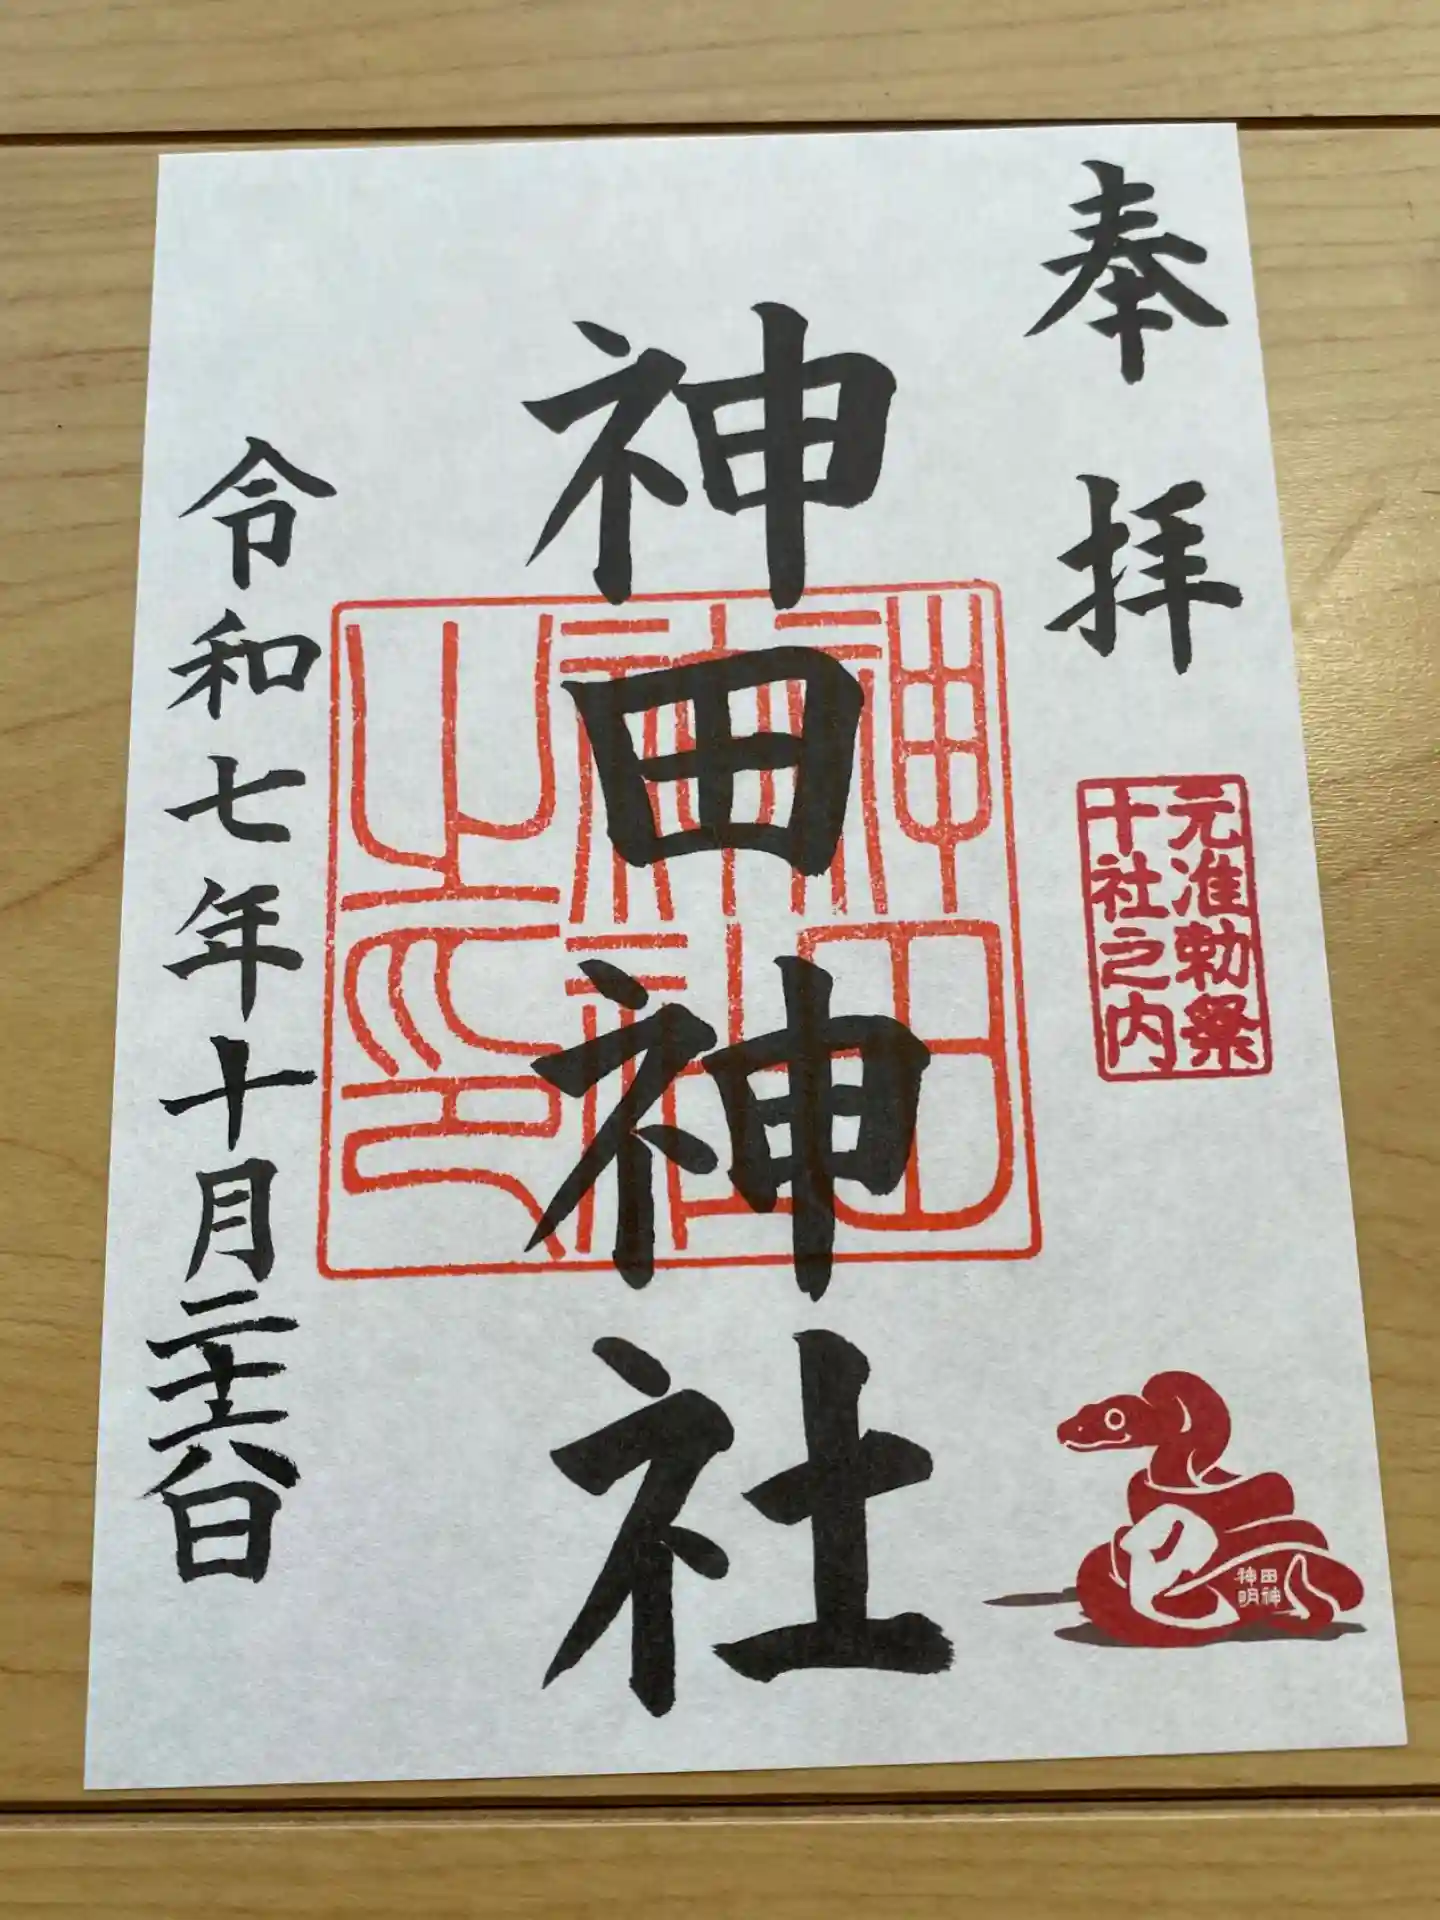 奉拝
元准勅祭
十社之内
巳
神田
明神
神田神社
神田
神社
之印
令和七年十月二十六日